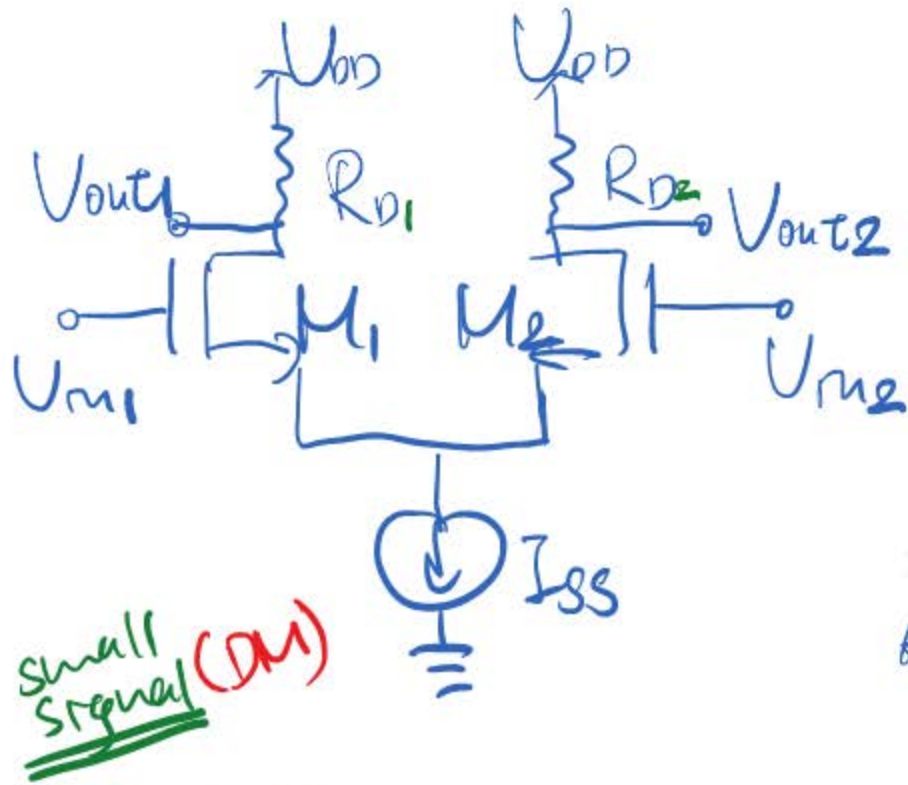 VDD VDD
Vout1 RD1 RD2 Vout2
M1 M2
Vin1 Vin2
ISS
small (DM)
signal